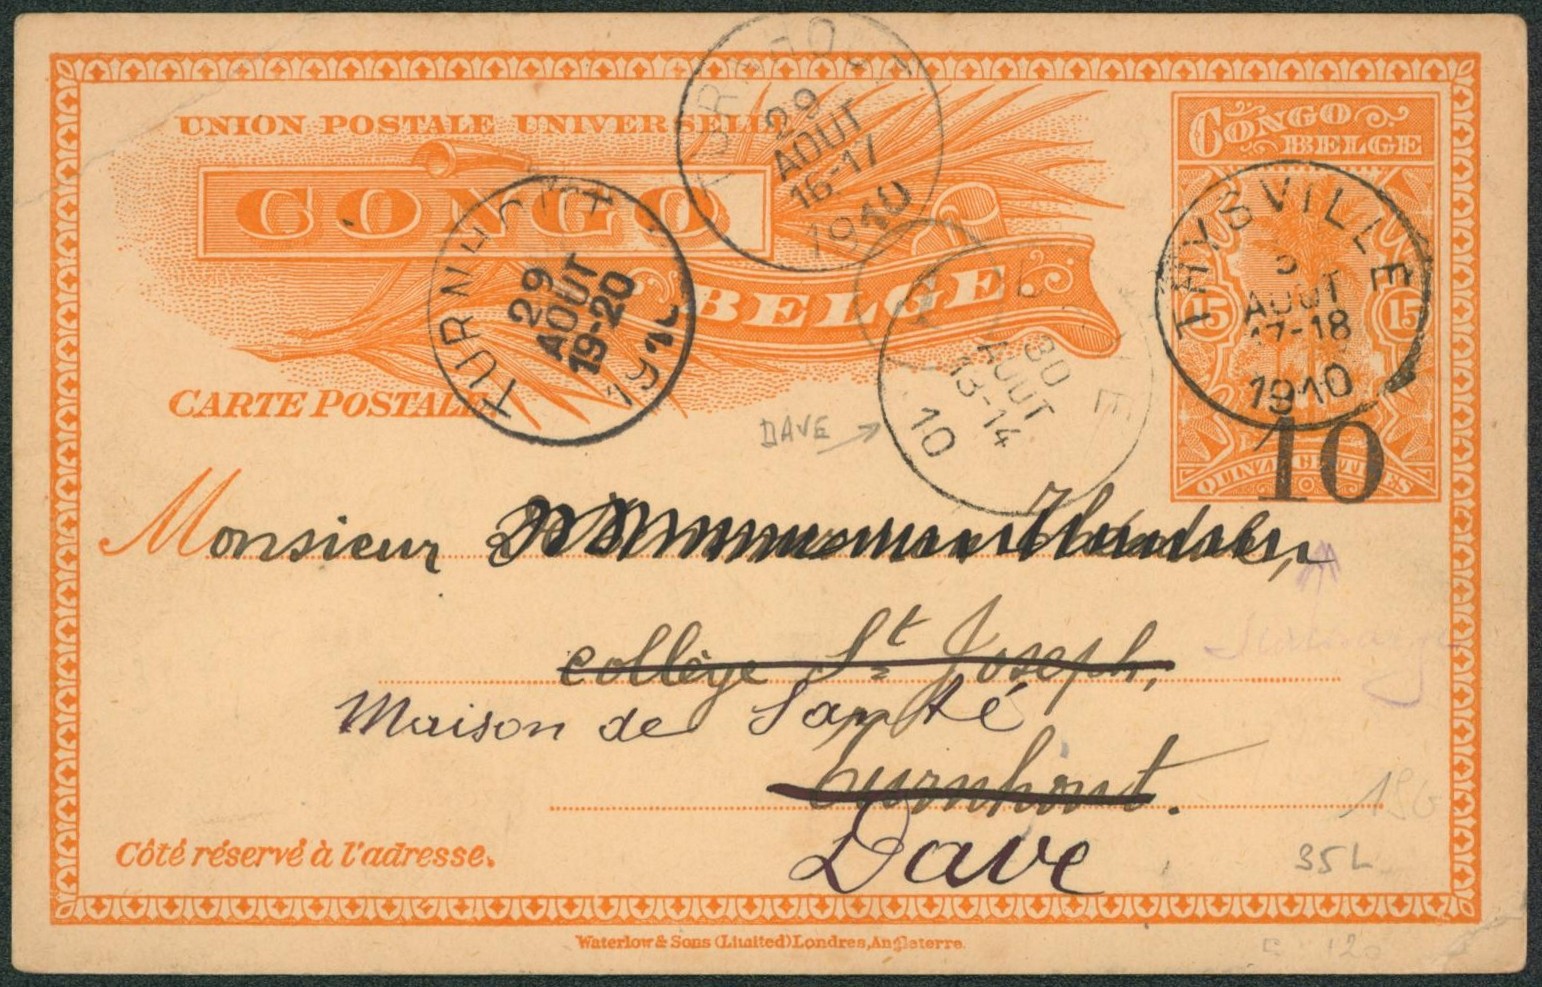 UNION POSTALE UNIVERSELLE
CONGO
BELGE.
CARTE POSTALE
CONGO
BELGE
15 15
QUINZE CENTIMES
10
TURNHOUT
29
AOUT
16-17
1910
TURNHOUT
29
AOUT
19-20
191
30
AOUT
13-14
10
THYSVILLE
3
AOUT
17-18
1910
DAVE
Monsieur
collège St Joseph,
Maison de Santé
Turnhout.
Dave
Côté réservé à l'adresse.
35L
Waterlow & Sons (Limited) Londres, Angleterre.